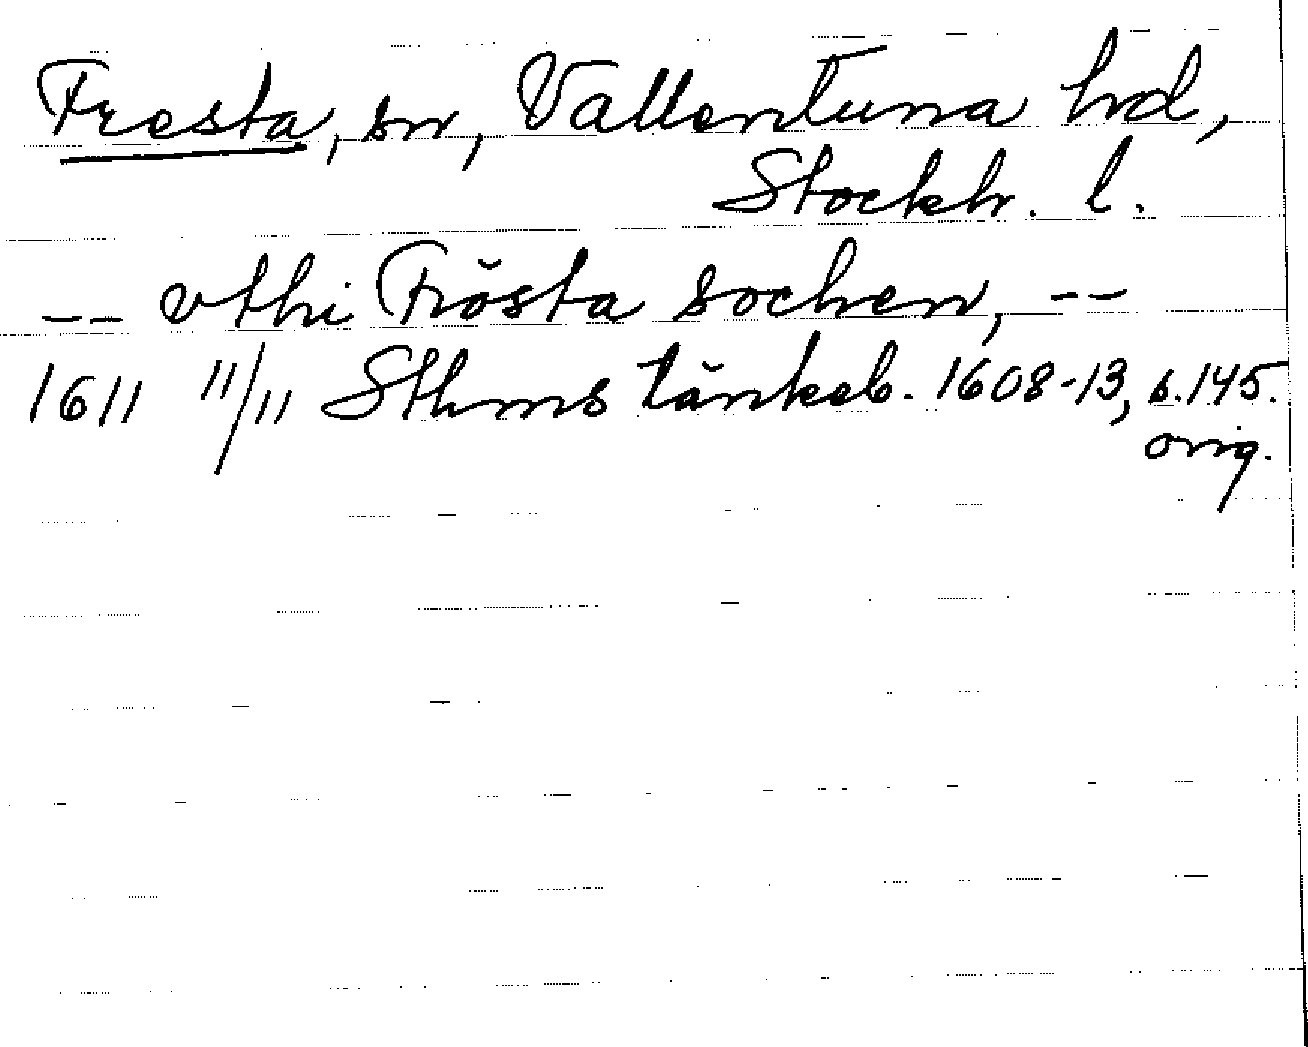 Fresta, sn, Vallentuna hrd,
Stockh. l.
-- vthi Frösta sochen, --
1611 11/11 Sthms tänkeb. 1608-13, s. 145.
orig.